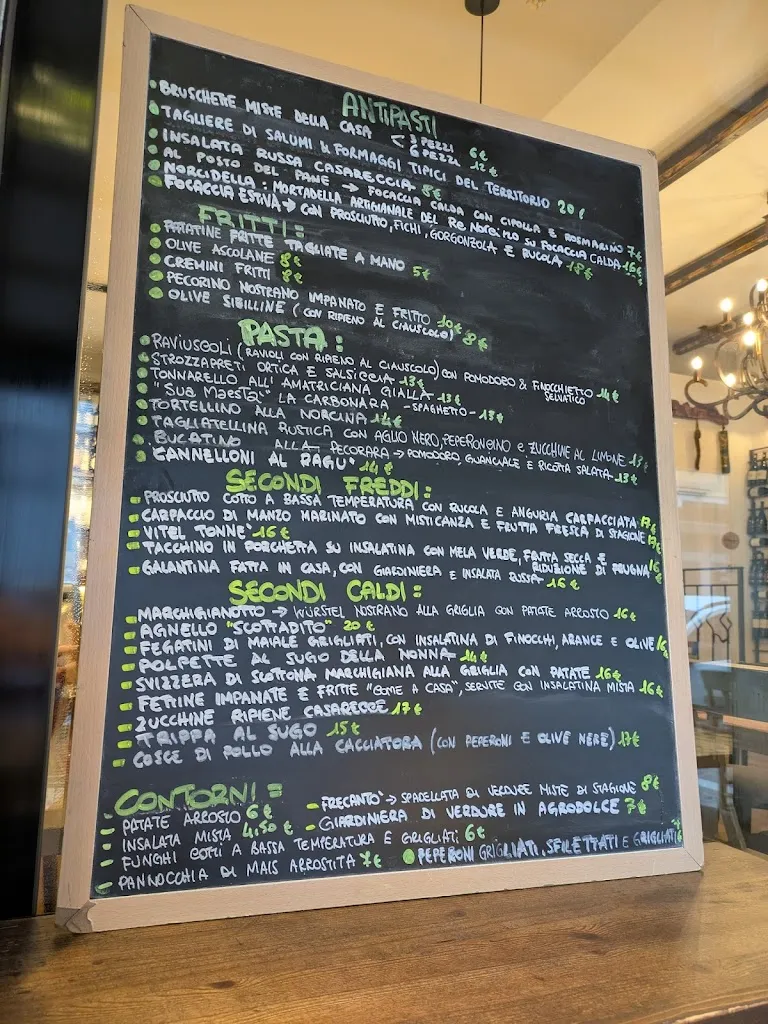 ANTIPASTI
• BRUSCHETTE MISTE DELLA CASA < 3 PEZZI 6€
6 PEZZI 12€
• TAGLIERE DI SALUMI & FORMAGGI TIPICI DEL TERRITORIO 20€
• INSALATA RUSSA CASARECCIA 8€
• AL POSTO DEL PANE → FOCACCIA CALDA CON CIPOLLA E ROSMARINO 7€
• NORCIDELLA: MORTADELLA ARTIGIANALE DEL SU FOCACCIA CALDA 16€
• FOCACCIA ESTIVA → CON PROSCIUTTO, FICHI, GORGONZOLA E RUCOLA 18€
FRITTI:
• PATATINE FRITTE TAGLIATE A MANO 5€
• OLIVE ASCOLANE 8€
• CREMINI FRITTI 8€
• PECORINO NOSTRANO IMPANATO E FRITTO 10€
• OLIVE SIBILLINE (CON RIPIENO AL CIAUSCOLO) 8€
PASTA:
• RAVIUSCOLI (RAVIOLI CON RIPIENO AL CIAUSCOLO) CON POMODORO & FINOCCHIETTO SELVATICO 14€
• STROZZAPRETI ORTICA E SALSICCIA 13€
• TONNARELLO ALL'AMATRICIANA GIALLA 13€
• "SUA MAESTA'" LA CARBONARA - SPAGHETTO - 13€
• TORTELLINO ALLA NORCINA 14€
• TAGLIATELLINA RUSTICA CON AGLIO NERO, PEPERONCINO E ZUCCHINE AL LIMONE 13€
• BUCATINO ALLA PECORARA → POMODORO, GUANCIALE E RICOTTA SALATA 13€
• CANNELLONI AL RAGU' 14€
SECONDI FREDDI:
- PROSCIUTTO COTTO A BASSA TEMPERATURA CON RUCOLA E ANGURIA CARPACCIATA 17€
- CARPACCIO DI MANZO MARINATO CON MISTICANZA E FRUTTA FRESCA DI STAGIONE
- VITEL TONNE' 16€
- TACCHINO IN PORCHETTA SU INSALATINA CON MELA VERDE, FRUTTA SECCA E RIDUZIONE DI PRUGNA 16€
- GALANTINA FATTA IN CASA, CON GIARDINIERA E INSALATA RUSSA 16€
SECONDI CALDI:
- MARCHIGIANOTTO → WÜRSTEL NOSTRANO ALLA GRIGLIA CON PATATE ARROSTO 16€
- AGNELLO "SCOTTADITO" 20€
- FEGATINI DI MAIALE GRIGLIATI, CON INSALATINA DI FINOCCHI, ARANCE E OLIVE
- POLPETTE AL SUGO DELLA NONNA 14€
- SVIZZERA DI SCOTTONA MARCHIGIANA ALLA GRIGLIA CON PATATE 16€
- FETTINE IMPANATE E FRITTE "COME A CASA", SERVITE CON INSALATINA MISTA 16€
- ZUCCHINE RIPIENE CASARECCE 17€
- TRIPPA AL SUGO 15€
- COSCE DI POLLO ALLA CACCIATORA (CON PEPERONI E OLIVE NERE) 17€
CONTORNI =
- PATATE ARROSTO 6€
- INSALATA MISTA 4,50€
- FUNGHI COTTI A BASSA TEMPERATURA E GRIGLIATI 6€
- PANNOCCHIA DI MAIS ARROSTITA 7€
- FRECANTO' → SPADELLATA DI VERDURE MISTE DI STAGIONE 8€
- GIARDINIERA DI VERDURE IN AGRODOLCE 7€
• PEPERONI GRIGLIATI, SFILETTATI E GRIGLIATI